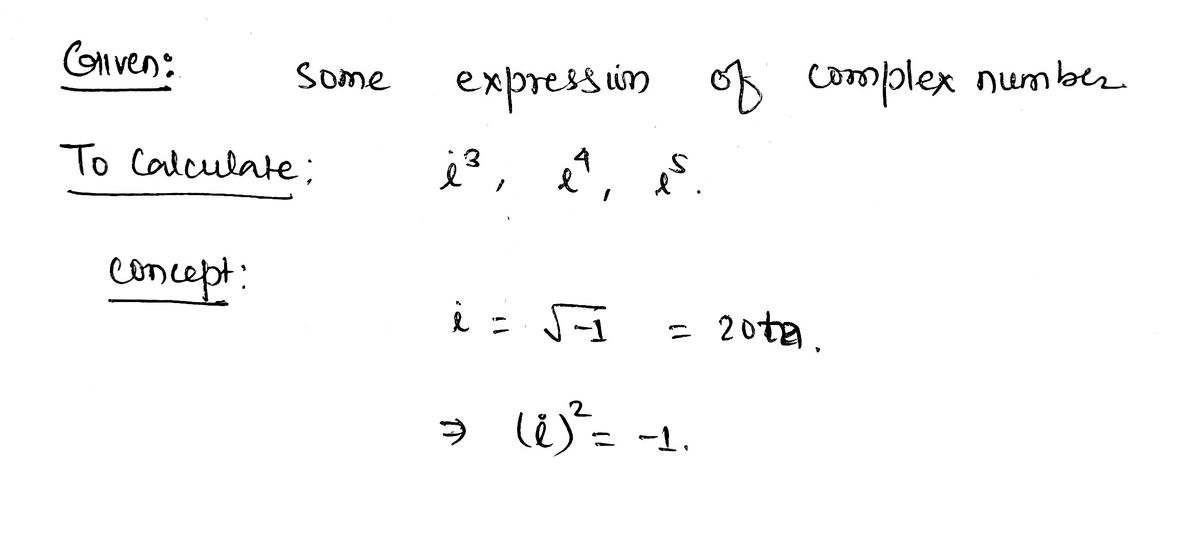 Given: some expression of complex number
To Calculate: i³, i⁴, i⁵.
concept:
i = √-1 = iota.
⇒ (i)² = -1.